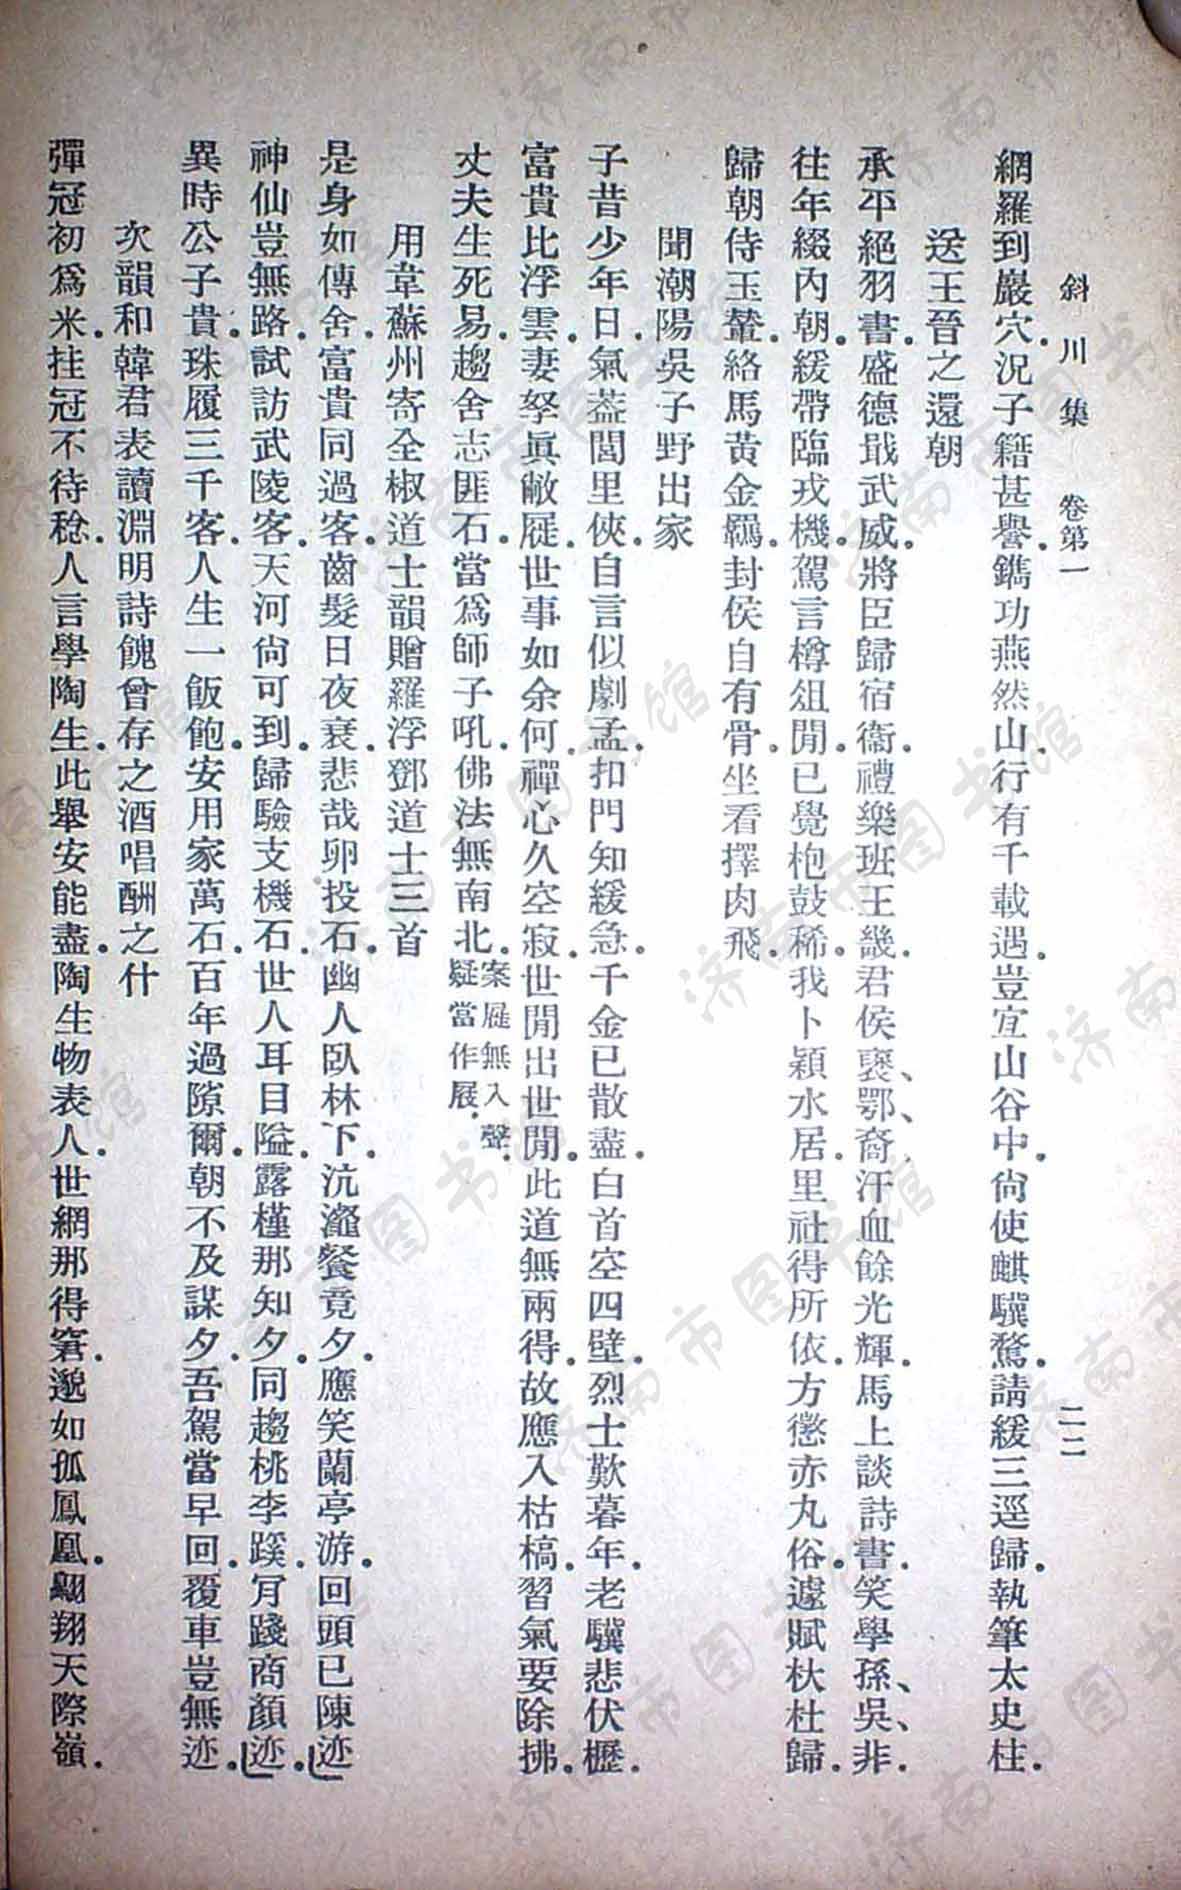 斜川集　卷第一　二二
網羅到巖穴．況子籍甚譽．鐫功燕然山．行有千載遇．豈宜山谷中．尙使麒驥騖．請緩三逕歸．執筆太史柱．
送王晉之還朝
承平絕羽書．盛德戢武威．將臣歸宿衞．禮樂班王畿．君侯褒、鄂、裔．汗血餘光輝．馬上談詩書．笑學孫、吳、非．
往年綴內朝．緩帶臨戎機．駕言樽俎閒．已覺枹鼓稀．我卜穎水居．里社得所依．方懲赤丸俗．遽賦杕杜歸．
歸朝侍玉輦．絡馬黃金羈．封侯自有骨．坐看擇肉飛．
聞潮陽吳子野出家
子昔少年日．氣蓋閭里俠．自言似劇孟．扣門知緩急．千金已散盡．白首空四壁．烈士歎暮年．老驥悲伏櫪．
富貴比浮雲．妻孥眞敝屣．世事如余何．禪心久空寂．世閒出世閒．此道無兩得．故應入枯槁．習氣要除拂．
丈夫生死易．趨舍志匪石．當爲師子吼．佛法無南北．案屣無入聲．疑當作屐．
用韋蘇州寄全椒道士韻贈羅浮鄧道士三首
是身如傳舍．富貴同過客．齒髮日夜衰．悲哉卵投石．幽人臥林下．沆瀣餐竟夕．應笑蘭亭游．回頭已陳迹
神仙豈無路．試訪武陵客．天河尙可到．歸驗支機石．世人耳目隘．露槿那知夕．同趨桃李蹊．肎踐商顏迹．
異時公子貴．珠履三千客．人生一飯飽．安用家萬石．百年過隙爾．朝不及謀夕．吾駕當早回．覆車豈無迹．
次韻和韓君表讀淵明詩餽曾存之酒唱酬之什
彈冠初爲米．挂冠不待稔．人言學陶生．此舉安能盡．陶生物表人．世網那得窘．邈如孤鳳凰．翺翔天際嶺．